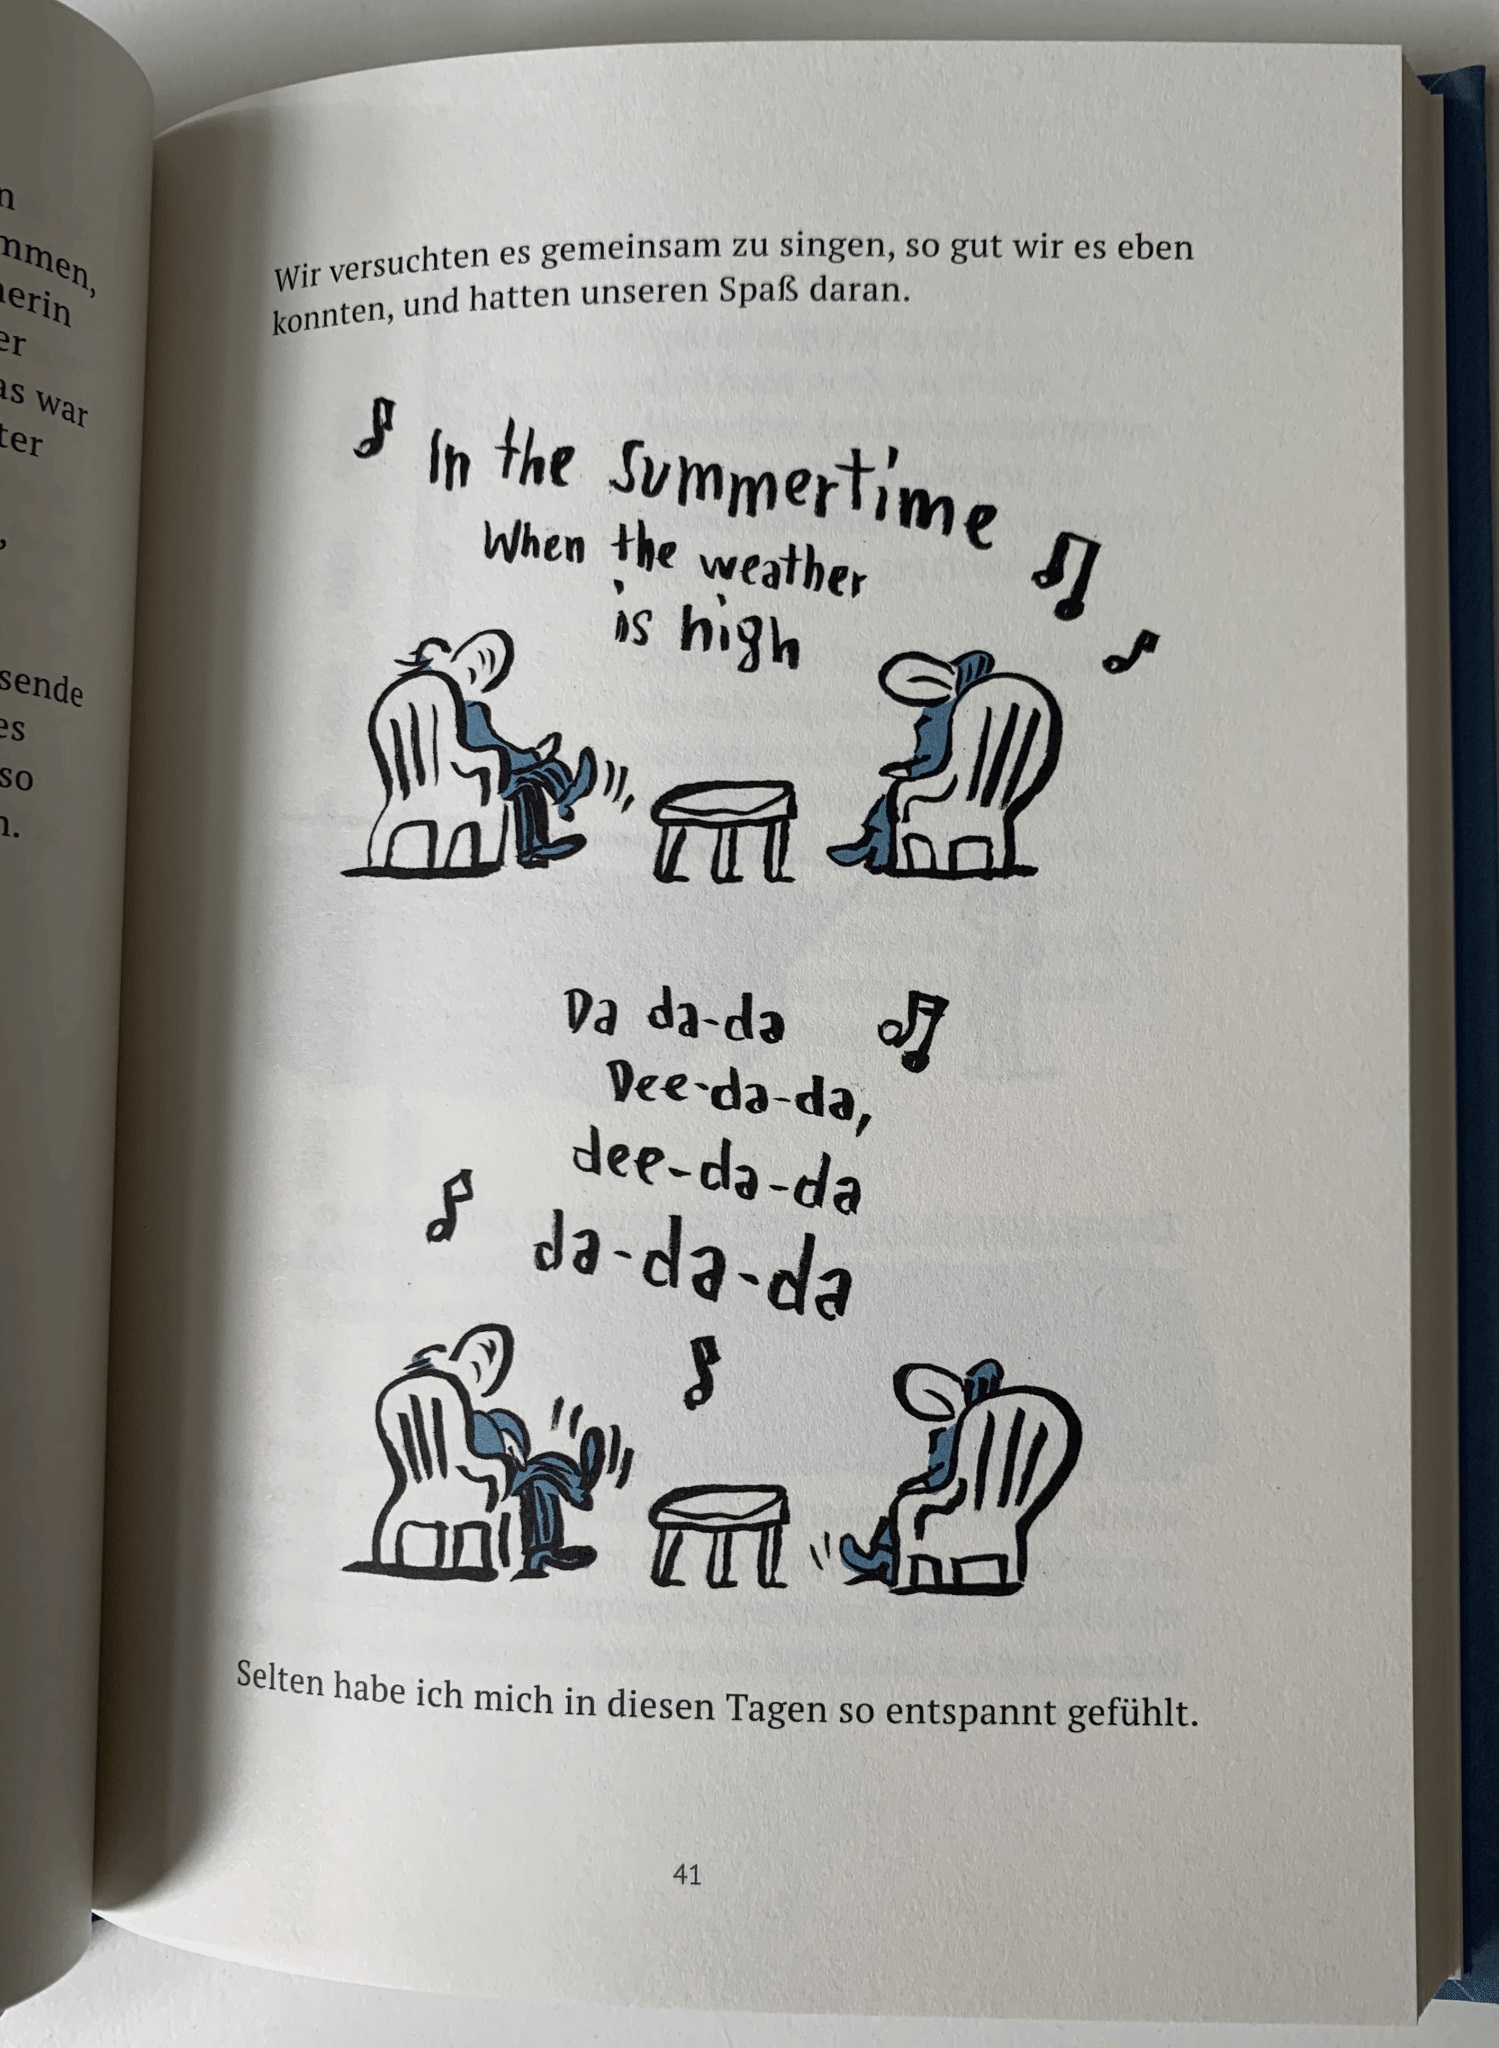 n
mmen,
erin
er
as war
ter
,
sende
es
so
n.
Wir versuchten es gemeinsam zu singen, so gut wir es eben
konnten, und hatten unseren Spaß daran.
In the summertime
When the weather
is high
Da da-da
Dee-da-da,
dee-da-da
da-da-da
Selten habe ich mich in diesen Tagen so entspannt gefühlt.
41